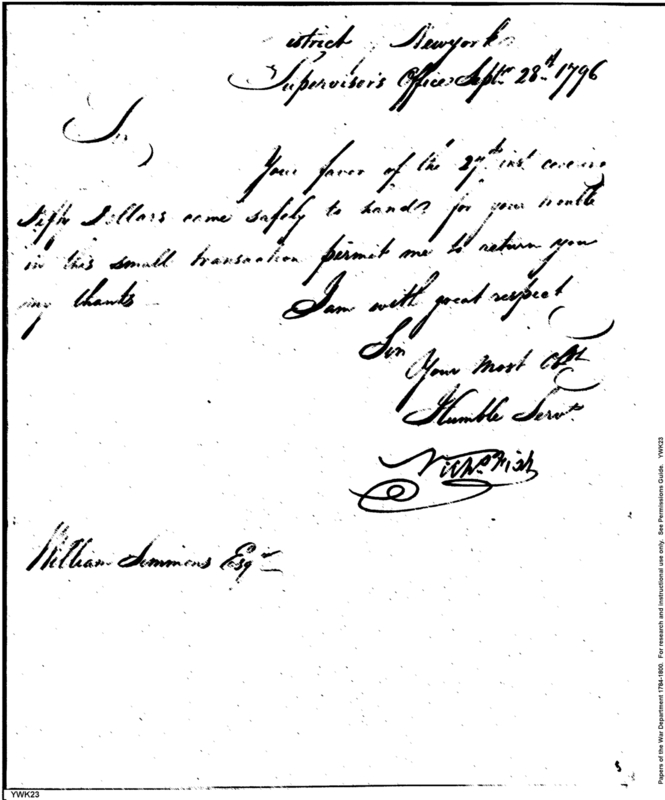 istrict Newyork
Supervisor's Office Septr. 28th. 1796
Sir
Your favor of the 27th inst. covering
fifty Dollars came safely to hand, for your trouble
in this small transaction permit me to return you
my thanks
I am with great respect
Sir
Your most Obt
Humble Servt.
Nichs. Fish
William Simmons Esqr
YWK23
Papers of the War Department 1784-1800. For research and instructional use only. See Permissions Guide. YWK23